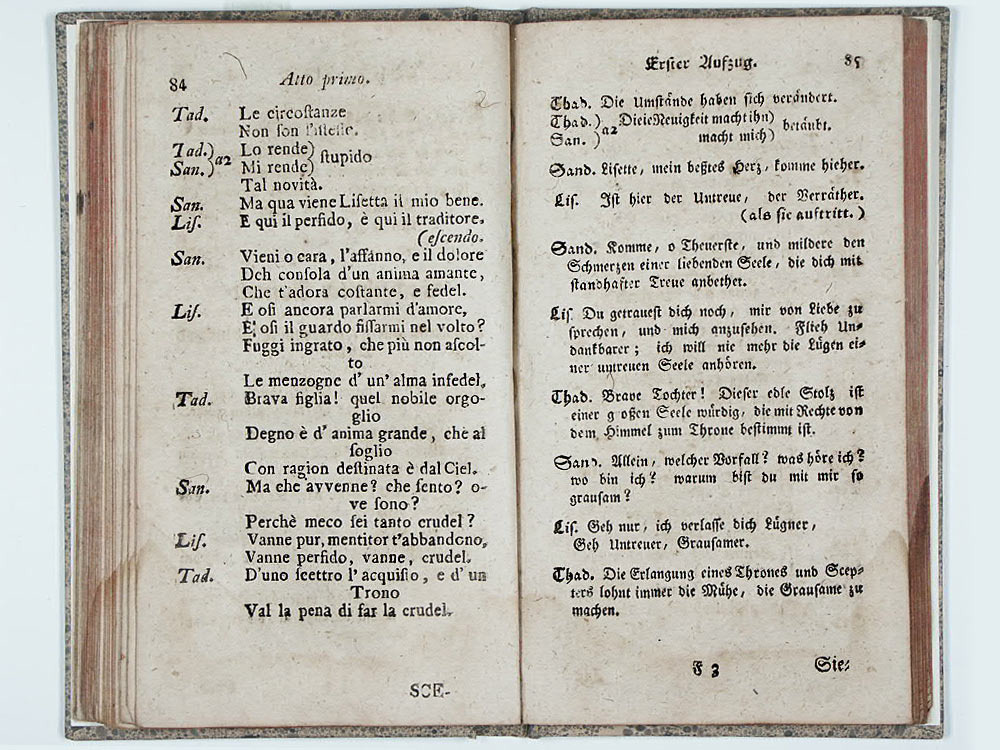 84 Atto primo.
Tad. Le circoſtanze
Non ſon l'iſteſſe.
Tad.) a2 Lo rende) ſtupido
San.) Mi rende)
Tal novità.
San. Ma qua viene Liſetta il mio bene.
Liſ. E qui il perfido, è qui il traditore.
(eſcendo.
San. Vieni o cara, l'affanno, e il dolore
Deh conſola d'un anima amante,
Che t'adora coſtante, e fedel.
Liſ. E oſi ancora parlarmi d'amore,
E' oſi il guardo fiſſarmi nel volto?
Fuggi ingrato, che più non aſcol-
to
Le menzogne d' un' alma infedel.
Tad. Brava figlia! quel nobile orgo-
glio
Degno è d' anima grande, che al
ſoglio
Con ragion deſtinata è dal Ciel.
San. Ma che avvenne? che ſento? o-
ve ſono?
Perchè meco ſei tanto crudel?
Liſ. Vanne pur, mentitor t'abbandono,
Vanne perfido, vanne, crudel.
Tad. D'uno ſcettro l'acquiſto, e d'un
Trono
Val la pena di far la crudel.
SCE-
Erſter Aufzug. 85
Thad. Die Umſtände haben ſich verändert.
Thad.) a2 Dieſe Neuigkeit macht ihn) betäubt.
San. ) macht mich)
Sand. Liſette, mein beßtes Herz, komme hieher.
Liſ. Iſt hier der Untreue, der Verräther.
(als ſie auftritt.)
Sand. Komme, o Theuerſte, und mildere den
Schmerzen einer liebenden Seele, die dich mit
ſtandhafter Treue anbethet.
Liſ. Du getraueſt dich noch, mir von Liebe zu
ſprechen, und mich anzuſehen. Flieh Un-
dankbarer; ich will nie mehr die Lügen ei-
ner untreuen Seele anhören.
Thad. Brave Tochter! Dieſer edle Stolz iſt
einer großen Seele würdig, die mit Rechte von
dem Himmel zum Throne beſtimmt iſt.
Sand. Allein, welcher Vorfall? was höre ich?
wo bin ich? warum biſt du mit mir ſo
grauſam?
Liſ. Geh nur, ich verlaſſe dich Lügner,
Geh Untreuer, Grauſamer.
Thad. Die Erlangung eines Thrones und Scep-
ters lohnt immer die Mühe, die Grauſame zu
machen.
F 3 Sie-